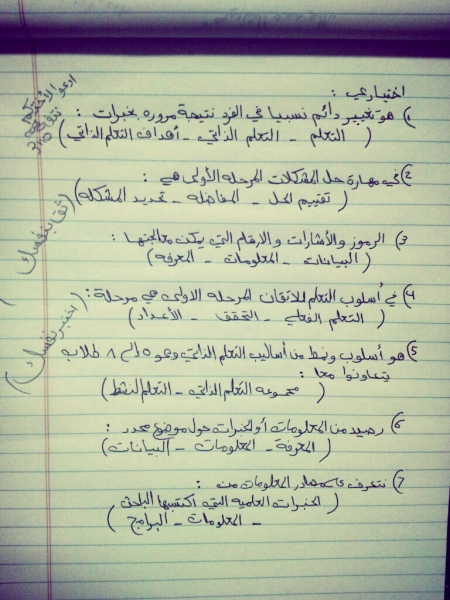 اختياري :
1) هو تغيير دائم نسبيا في الفرد نتيجة مروره بخبرات :
( التعلم - التعلم الذاتي - أهداف التعلم الذاتي )
2) في مهارة حل المشكلات المرحله الأولى هي :
( تقييم الحل - المفاضله - تحديد المشكله )
3) الرموز والأشارات والارقام التي يمكن معالجتها :
( البيانات - المعلومات - المعرفه )
4) في أسلوب التعلم للاتقان المرحله الاولى هي مرحلة :
( التعلم الفعلي - التحقق - الأعداد )
5) هو أسلوب ونمط من أساليب التعلم الذاتي وهو 5 إلى 8 طلاب
يتعاونوا معا :
( مجموعه التعلم الذاتي - التعلم النشط )
6) رصيد من المعلومات أو الخبرات حول موضوع محدد :
( المعرفة - المعلومات - البيانات )
7) نتعرف على مصادر المعلومات من :
( الخبرات العلميه التي اكتسبها الباحث
- المعلومات - البرامج )
ادعو لأختكم
ثق بنفسك
( اختبر نفسك )